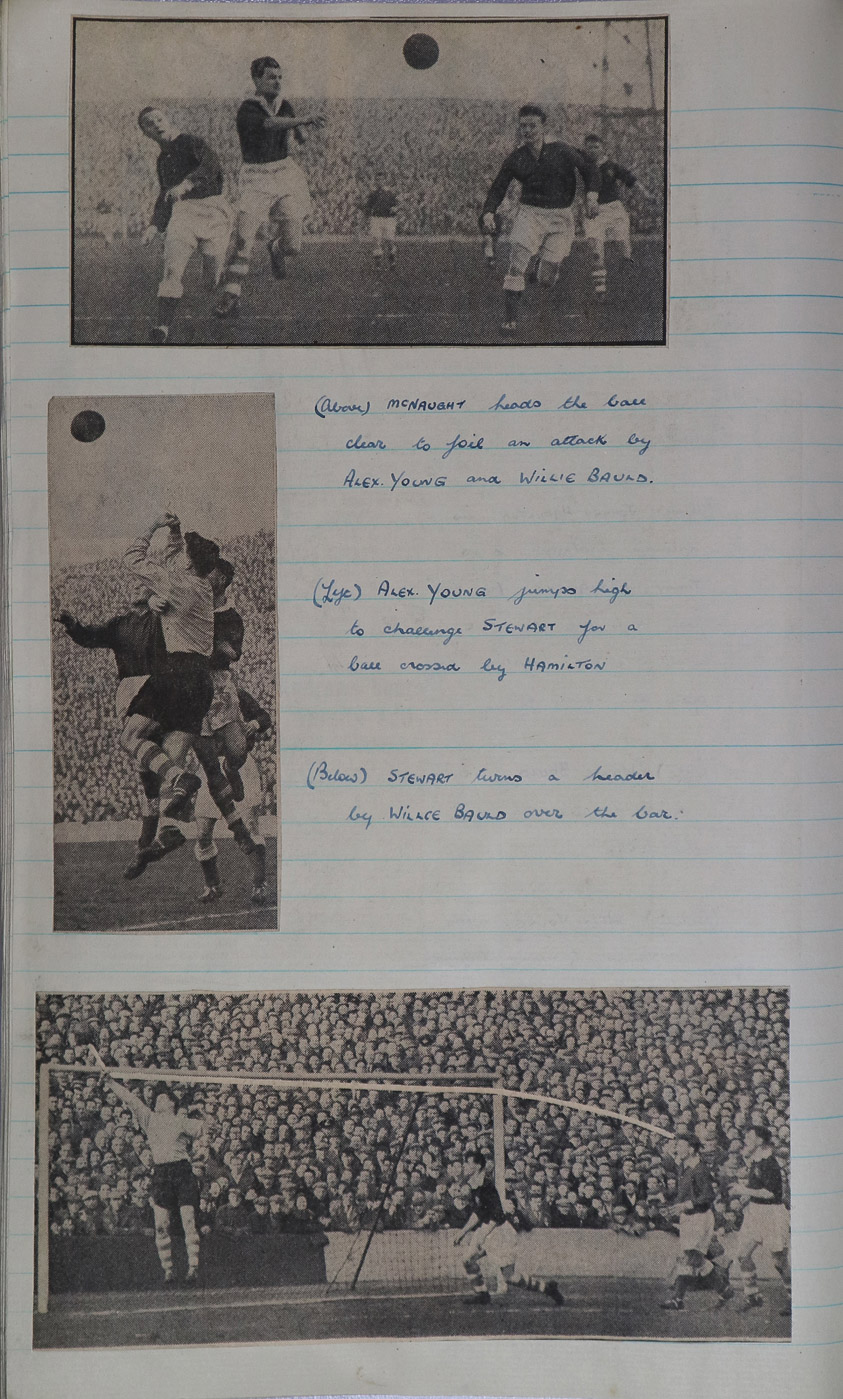 (Above) McNAUGHT heads the ball
clear to foil an attack by
ALEX. YOUNG and WILLIE BAULD.
(Left) ALEX. YOUNG jumps high
to challenge STEWART for a
ball crossed by HAMILTON
(Below) STEWART turns a header
by WILLIE BAULD over the bar.